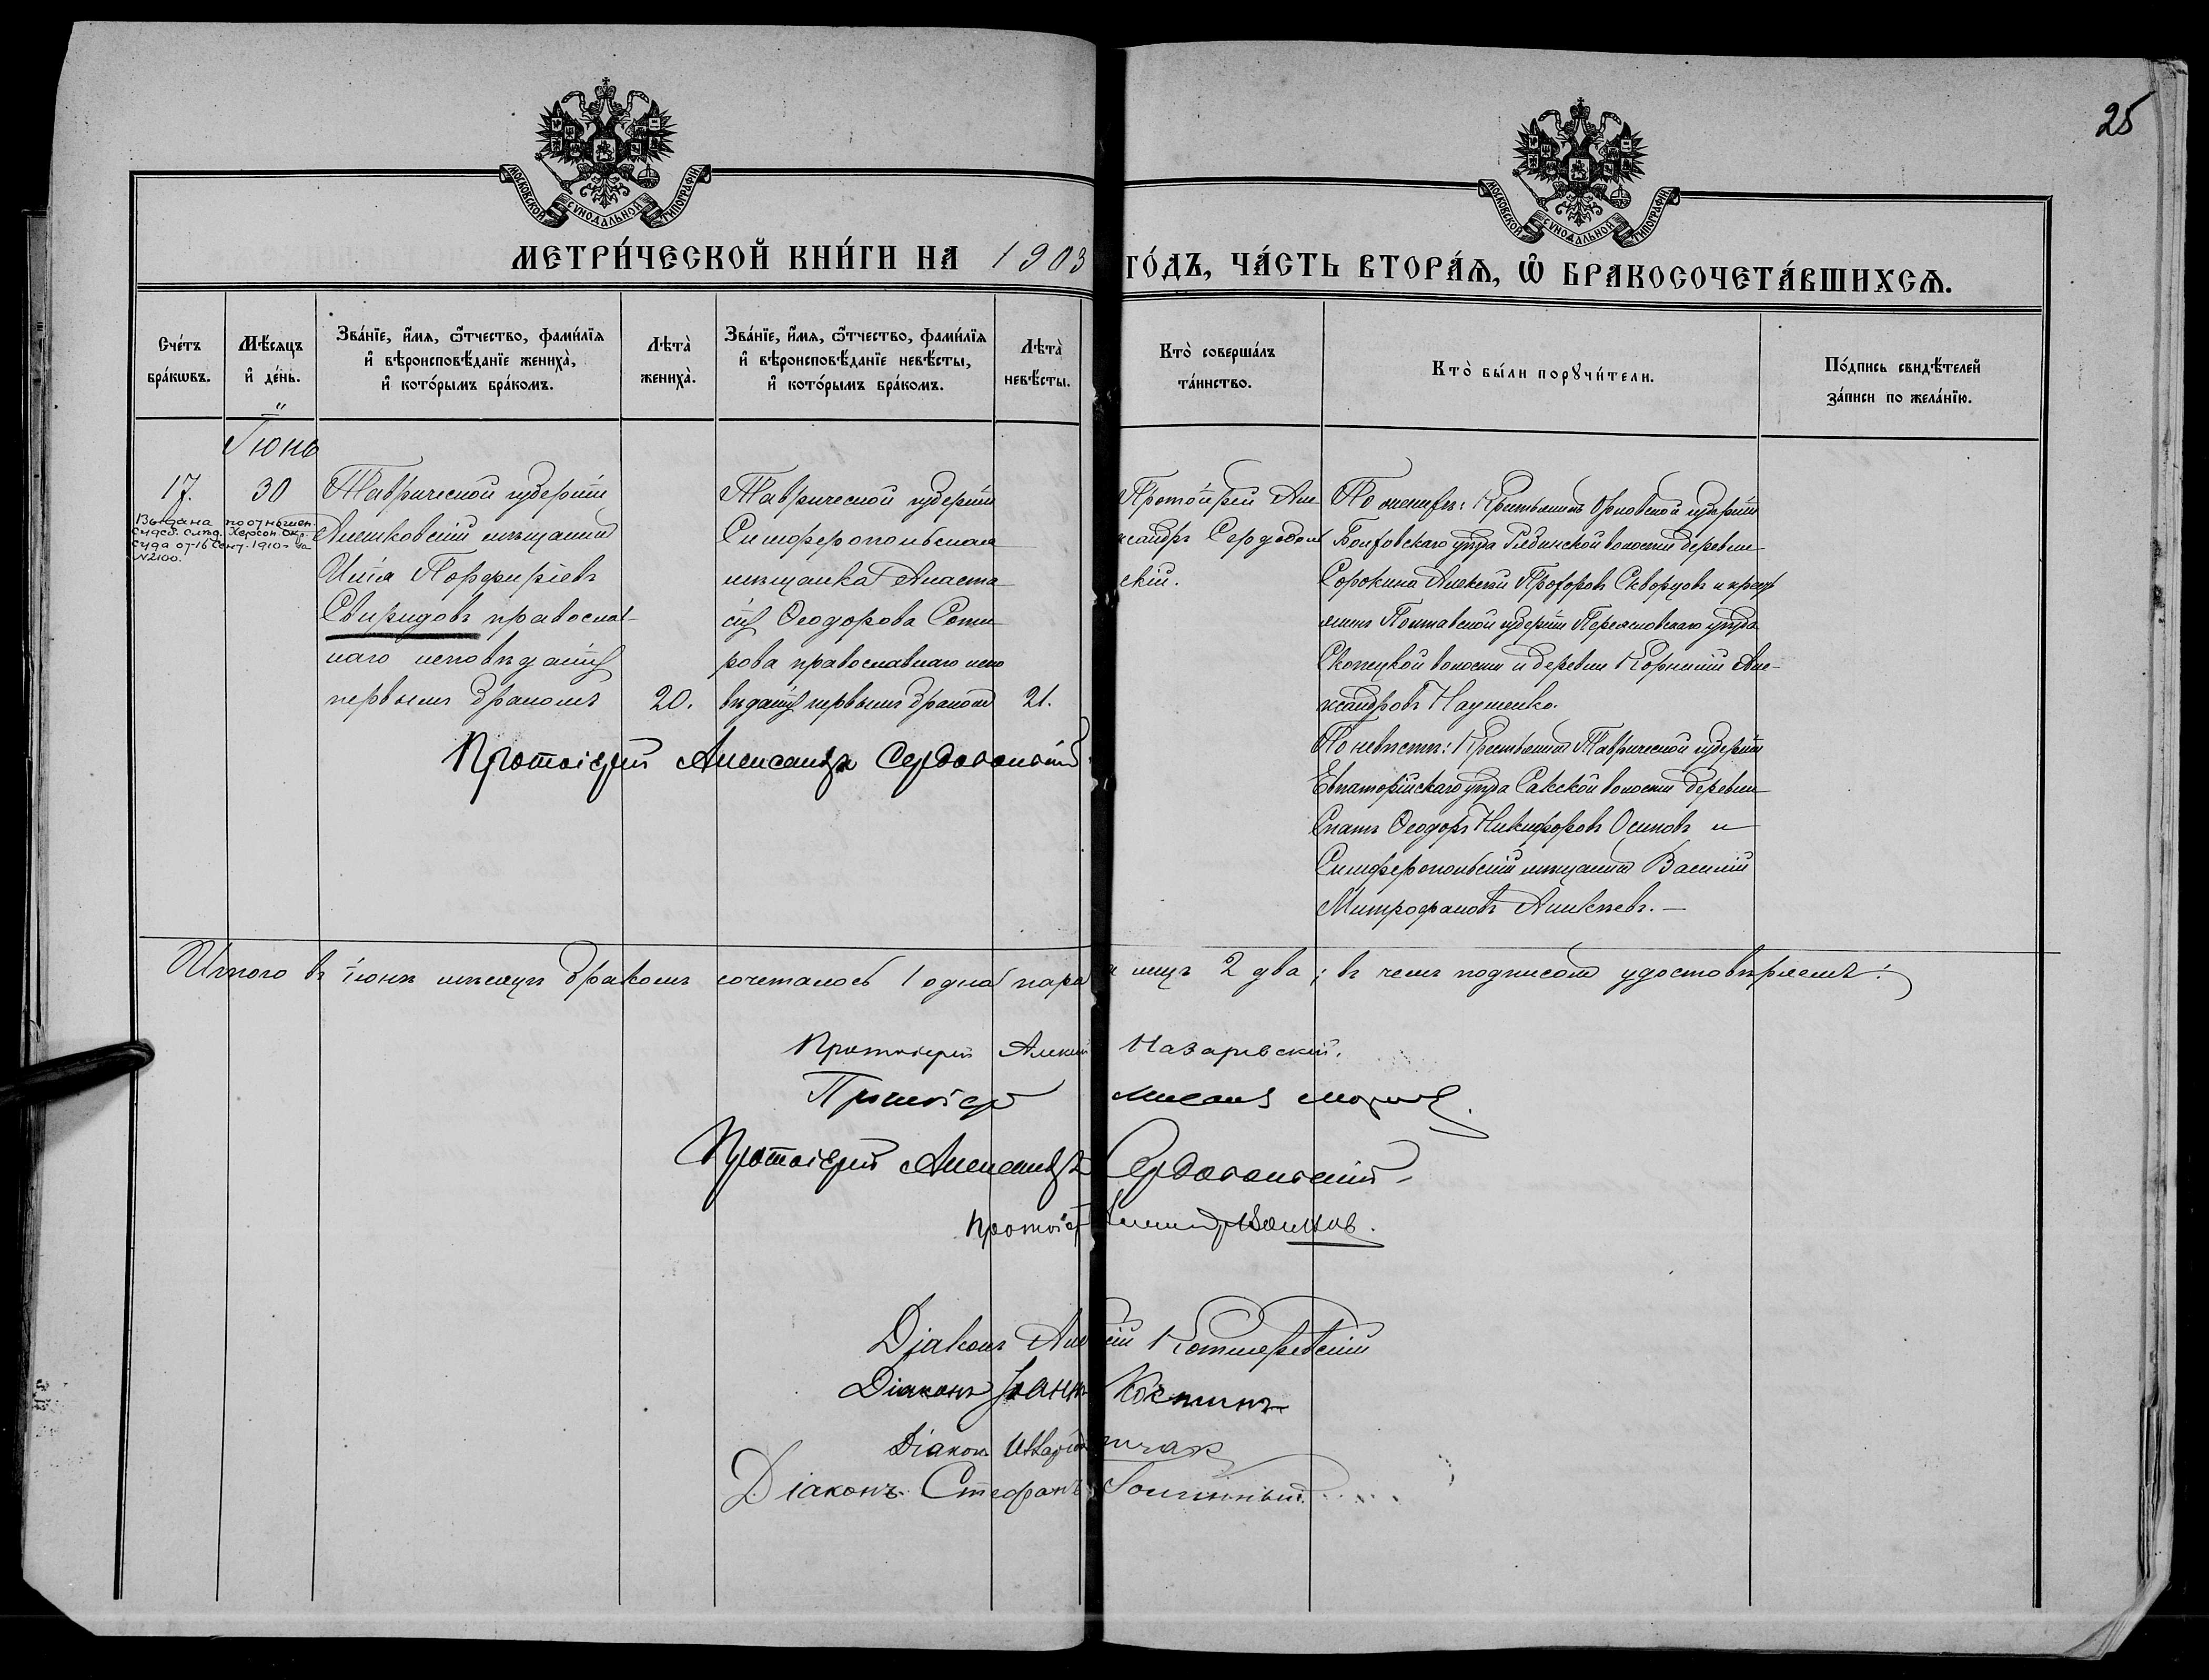 25
МОСКОВСКОЙ СѴНОДАЛЬНОЙ ТИПОГРАФІИ
МОСКОВСКОЙ СѴНОДАЛЬНОЙ ТИПОГРАФІИ
МЕТРИ́ЧЕСКОЙ КНИ́ГИ НА 1903 ГО́ДЪ, ЧА́СТЬ ВТОРА́Ѧ, Ѽ БРАКОСОЧЕТА́ВШИХСѦ.
Сче́тъ
бра́кѡвъ.
Мѣ́сѧцъ
и҆ де́нь.
Зва́нїе, и҆́мѧ, ѻ҆́тчество, фами́лїѧ
и҆ вѣроисповѣ́данїе жениха̀,
и҆ кото́рымъ бра́комъ.
Лѣта̀
жениха̀.
Зва́нїе, и҆́мѧ, ѻ҆́тчество, фами́лїѧ
и҆ вѣроисповѣ́данїе невѣ́сты,
и҆ кото́рымъ бра́комъ.
Лѣта̀
невѣ́сты.
Кто̀ соверша́лъ
та́инство.
Кто̀ бы́ли порꙋчи́тели.
По́дпись свидѣ́телей
за́писи по жела́нїю.
Іюнь
17.
30
Выдана по отношен.
Судеб. слѣд. Херсон. Окр.
Суда от 16 Сент. 1910 г. за
№ 2100.
Таврической губерніи
Алешковскій мѣщанинъ
Илія Порфиріевъ
Свиридовъ православ-
наго исповѣданія
первымъ бракомъ
20.
Таврической губерніи
Симферопольская
мѣщанка Анаста-
сія Ѳеодорова Сами-
рова православнаго испо-
вѣданія первымъ бракомъ
21.
Протоіерей Але-
ксандръ Сердоболь
скій.
По женихѣ: Крестьянинъ Орловской губерніи
Болховскаго уѣзда деревни
Сорокина Алексѣй Прохоровъ Скворцовъ и крест
янинъ Полтавской губерніи Переяславскаго уѣзда
волости и деревни Корнилій Але-
ксандровъ Науменко.
По невѣстѣ: Крестьянинъ Таврической губерніи
Евпаторійскаго уѣзда Сакской волости деревни
Спатъ Ѳеодоръ Никифоровъ Осиповъ и
Симферопольскій мѣщанинъ Василій
Митрофановъ Аликѣевъ. —
Протоіерей Александръ Сердобольскій
Итого въ іюнѣ мѣсяцѣ бракомъ сочеталось 1 одна пара а лицъ 2 два; въ чемъ подписомъ удостовѣряемъ:
Протоіерей Алексій Назаревскій.
Протоіер
Протоіерей Александръ Сердобольскій
Протоіер
Діаконъ Алексій Котляревскій
Діаконъ Іоаннъ Костинъ
Діаконъ Иларіонъ
Діаконъ Стефанъ